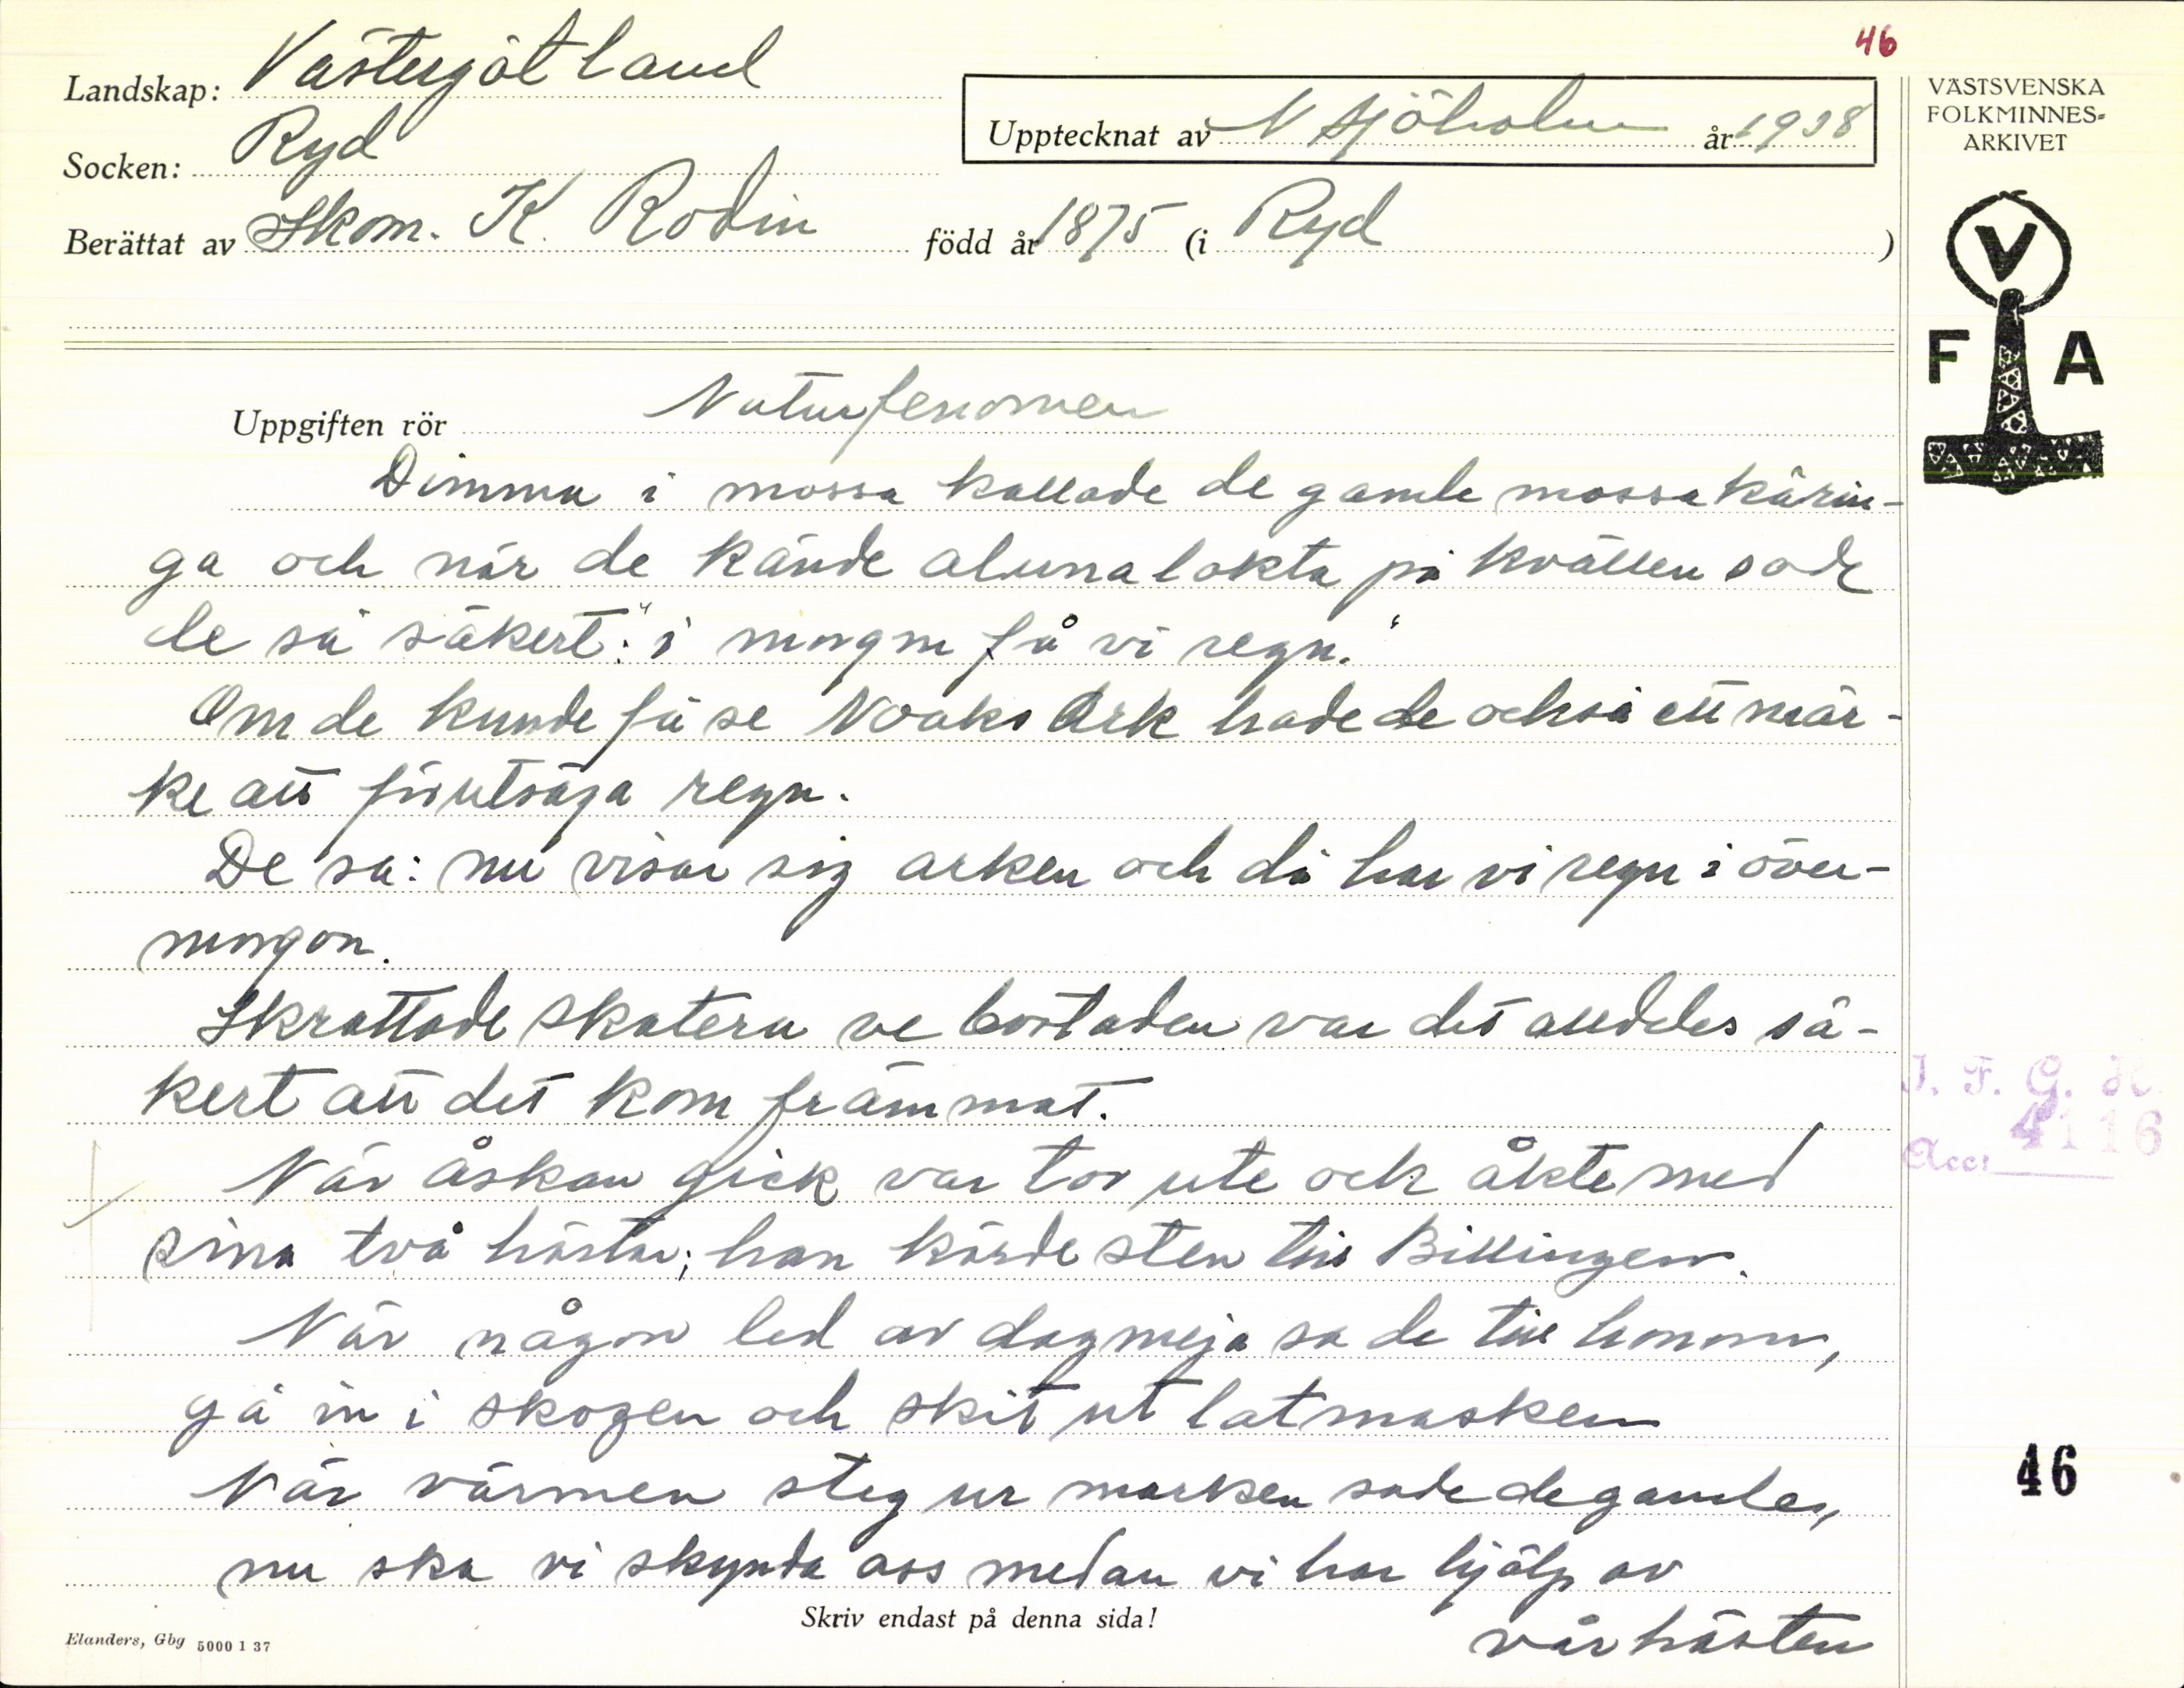 46
Landskap: Västergötland
Upptecknat av N Sjöholm år 1938
VÄSTSVENSKA
FOLKMINNES=
ARKIVET
Socken: Ryd
Berättat av Skom. K. Rodin född år 1875 (i Ryd)
V
F A
Uppgiften rör Naturfenomen
Dimma i mossa kallade de gamle mossakärin-
ga och när de kände alunalokta på kvällen sade
de så säkert: "i morgon få vi regn."
Om de kunde få se Noaks Ark hade de också ett mär-
ke att förutsäga regn.
De sa: nu visar sig arken och då har vi regn i över-
morgon.
Skrattade skatera ve bostaden var det alldeles sä-
kert att det kom främmat.
När åskan gick var tor ute och åkte med
sina två hästar; han körde sten till Billingen.
När någon led av dagmeja sa de till honom,
gå in i skogen och skit ut latmasken
När värmen steg ur marken sade de gamle,
nu ska vi skynda oss medan vi har hjälp av
vårhästen
Skriv endast på denna sida!
Elanders, Gbg 5000 1 37
I. F. G. H.
Acc: 4116
46